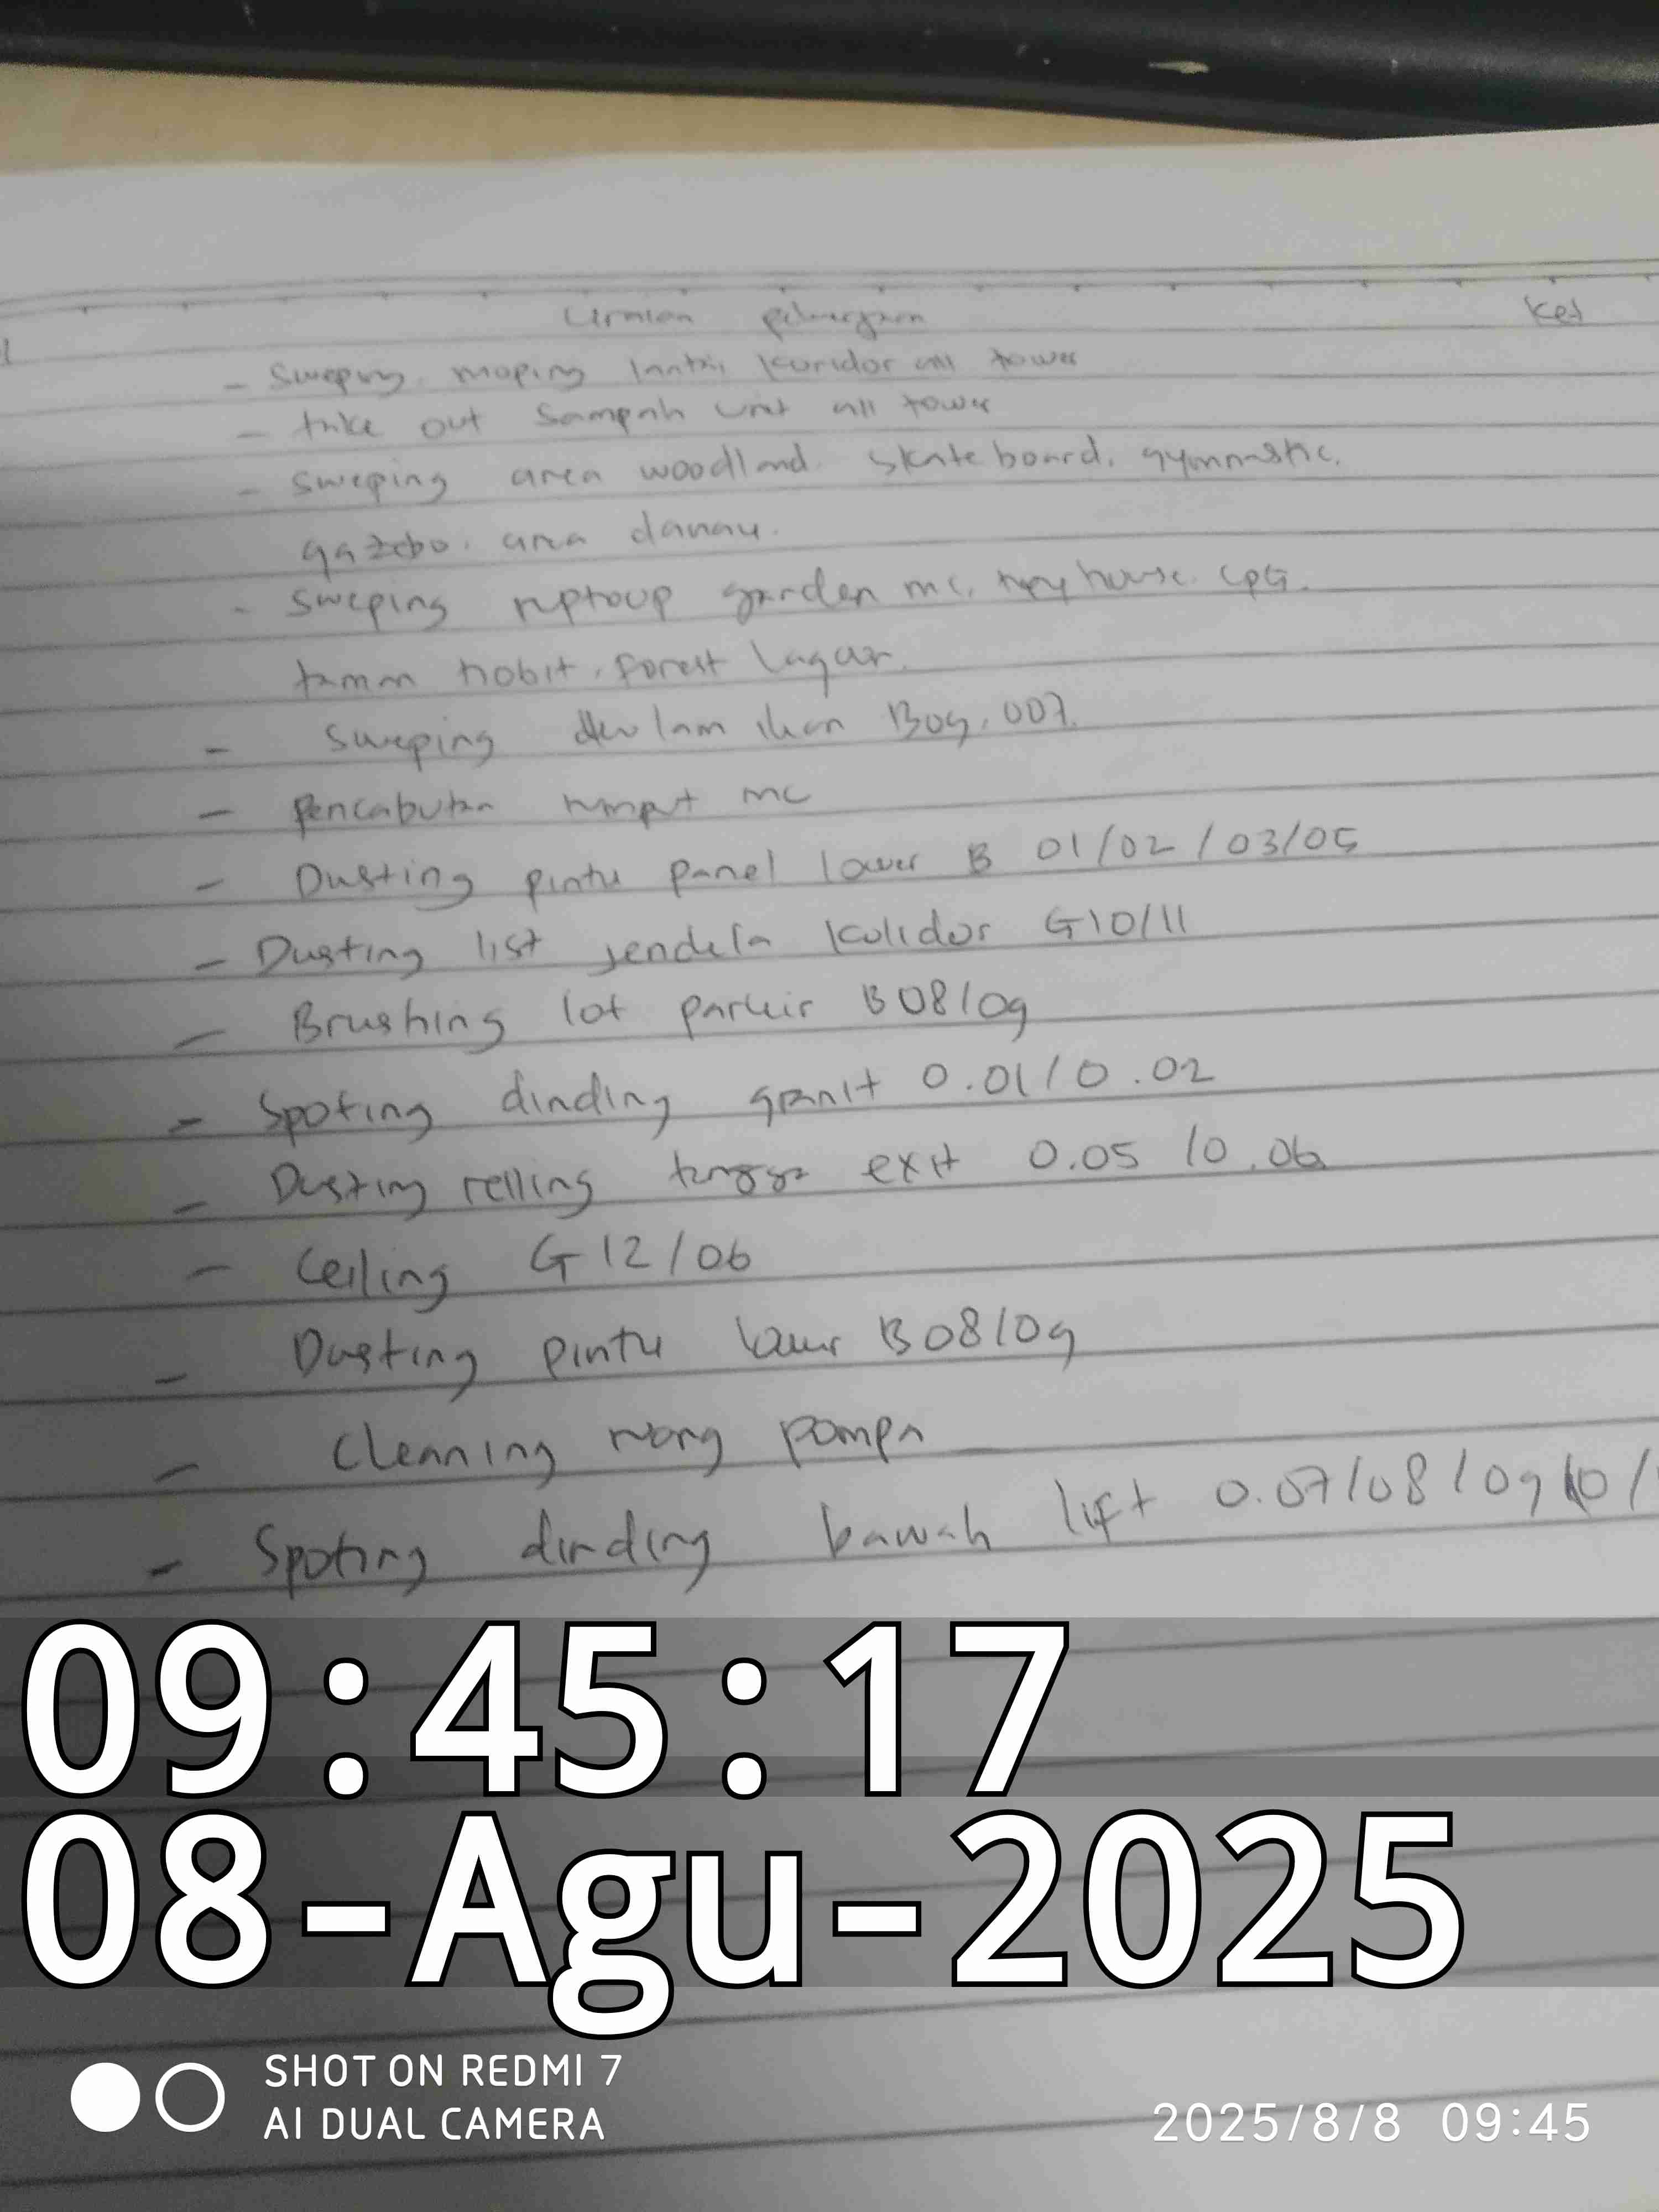 Uraian pekerjaan Ket
- Sweping. moping lantai koridor all tower
- take out Sampah unit all tower
- Sweping area woodland. skate board. gymnastic.
gazebo. area danau.
- Sweping garden mc. house. CPG.
taman hobit. forest
- Sweping ikan B09. 007.
- Pencabutan rumput mc
- Dusting pintu panel lower B 01/02/03/05
- Dusting list jendela kolidor G10/11
- Brushing lot parkir B08/09
- Spoting dinding granit 0.01/0.02
- Dusting relling tangga exit 0.05/0.06
- Ceiling G12/06
- Dusting pintu B08/09
- Cleaning ruang pompa
- Spoting dinding bawah lift 0.07/08/09/10/
09:45:17
08-Agu-2025
SHOT ON REDMI 7
AI DUAL CAMERA
2025/8/8 09:45